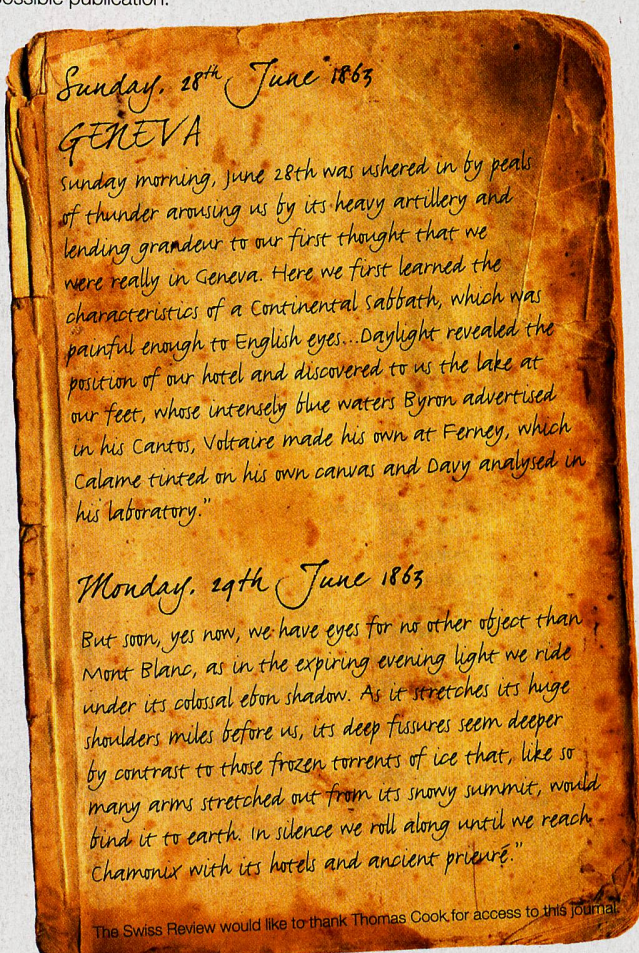 possible publication.
Sunday, 28th June 1863
GENEVA
Sunday morning, June 28th was ushered in by peals
of thunder arousing us by its heavy artillery and
lending grandeur to our first thought that we
were really in Geneva. Here we first learned the
characteristics of a Continental Sabbath, which was
painful enough to English eyes...Daylight revealed the
position of our hotel and discovered to us the lake at
our feet, whose intensely blue waters Byron advertised
in his Cantos, Voltaire made his own at Ferney, which
Calame tinted on his own canvas and Davy analysed in
his laboratory."
Monday, 29th June 1863
But soon, yes now, we have eyes for no other object than
Mont Blanc, as in the expiring evening light we ride
under its colossal ebon shadow. As it stretches its huge
shoulders miles before us, its deep fissures seem deeper
by contrast to those frozen torrents of ice that, like so
many arms stretched out from its snowy summit, would
bind it to earth. In silence we roll along until we reach
Chamonix with its hotels and ancient prieuré."
The Swiss Review would like to thank Thomas Cook for access to this journal.